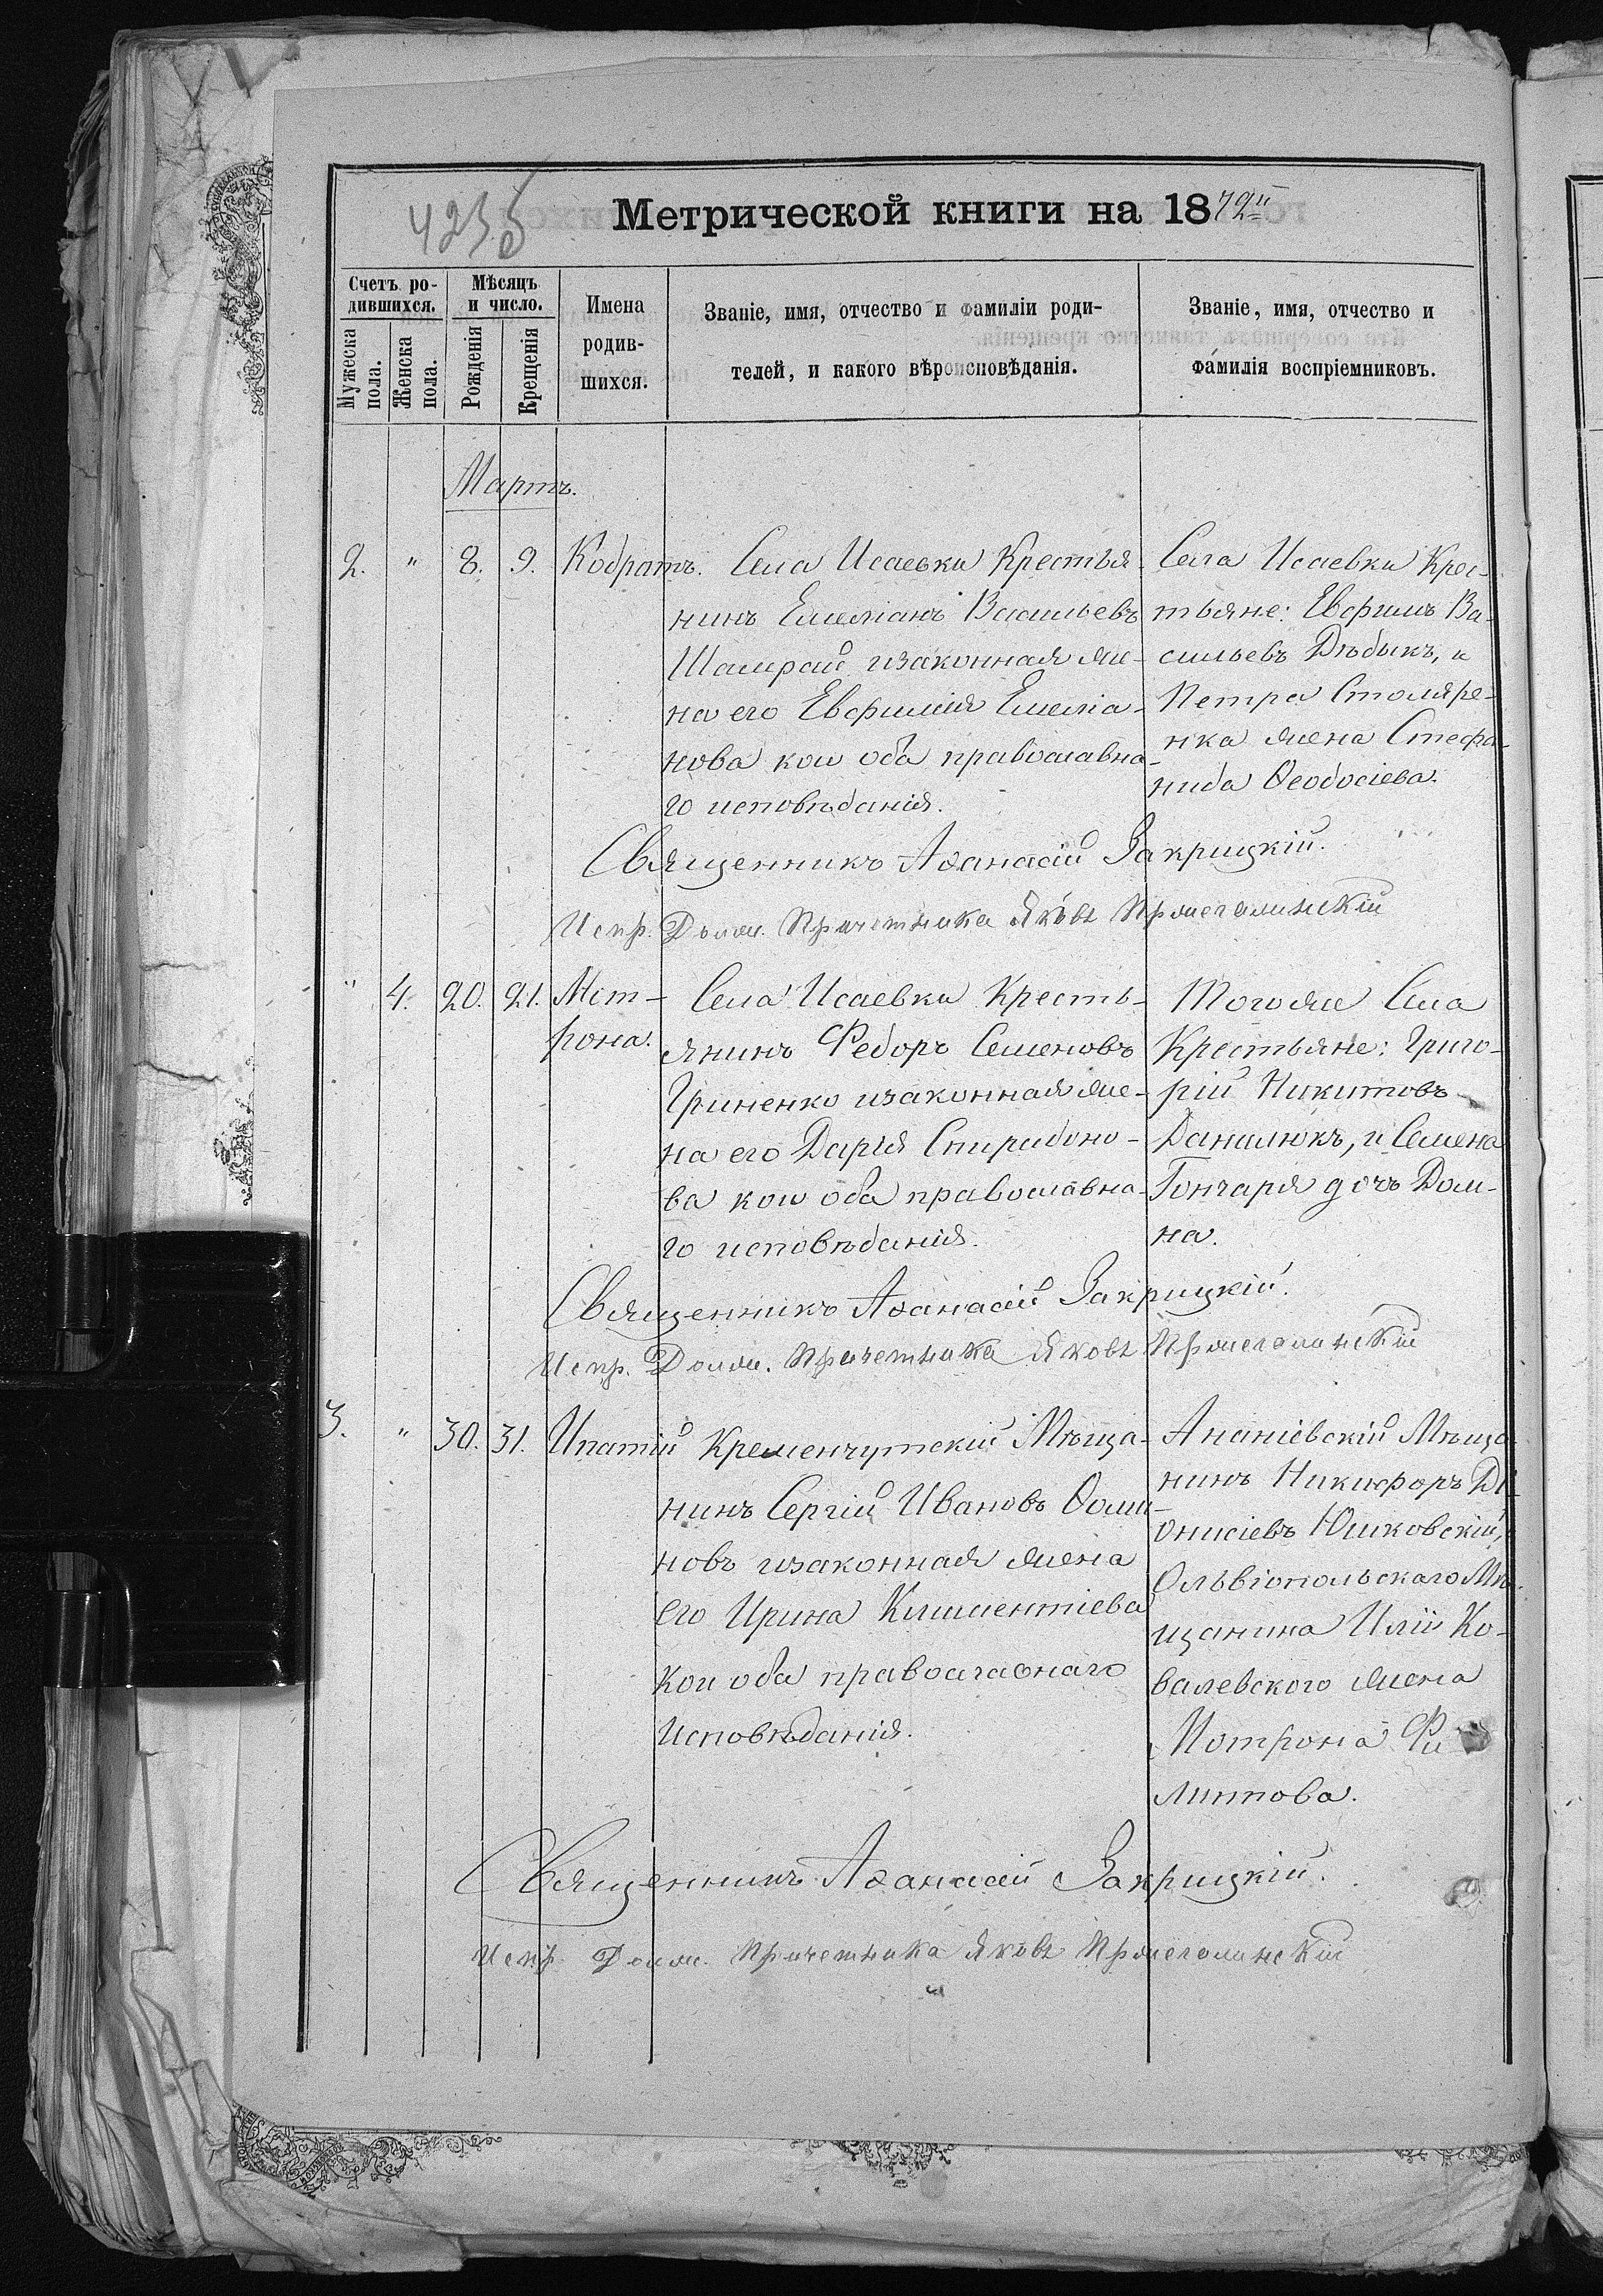 4235
Метрической книги на 1872й
Счетъ ро-
дившихся.
Мужеска
пола.
Женска
пола.
Мѣсяцъ
и число.
Рожденія
Крещенія
Имена
родив-
шихся.
Званіе, имя, отчество и фамиліи роди-
телей, и какого вѣроисповѣданія.
Званіе, имя, отчество и
фамилія воспріемниковъ.
Мартъ.
2. " 8. 9. Кодратъ.
Села Исаевки Крестья-
нинъ Емеліанъ Васильевъ
Шамрай изаконная же-
на его Евфимія Емеліа-
нова кои оба православна-
го исповѣданія.
Села Исаевки Крес-
тьяне: Евфимъ Ва-
сильевъ Дѣдыкъ, и
Петра Столяре-
нка жена Стефа-
нида Ѳеодосіева.
Священникъ Аѳанасій Закрицкій.
Испр. Долж. Причетника Яковъ
" 4. 20. 21. Мат-
рона.
Села Исаевки Кресть-
янинъ Федоръ Семеновъ
Гриненко изаконная же-
на его Дарія Спиридоно-
ва кои оба православна-
го исповѣданія.
Тогоже Села
Крестьяне: Григо-
рій Никитовъ
Данилюкъ, и Семена
Гончаря дочь Дом-
на.
Священникъ Аѳанасій Закрицкій.
Испр. Долж. Причетника Яковъ
3. " 30. 31. Ипатій
Кременчугскій Мѣща-
нинъ Сергій Ивановъ Ѳоми-
новъ изаконная жена
его Ирина Климентіева
кои оба православнаго
исповѣданія.
Ананіевскій Мѣща-
нинъ Никифоръ Ді-
онисіевъ Юшковскій,
Ольвіопольскаго Мѣ-
щанина Иліи Ко-
валевского жена
Мотрона Фи
липпова.
Священникъ Аѳанасій Закрицкій.
Испр. Долж. Причетника Яковъ